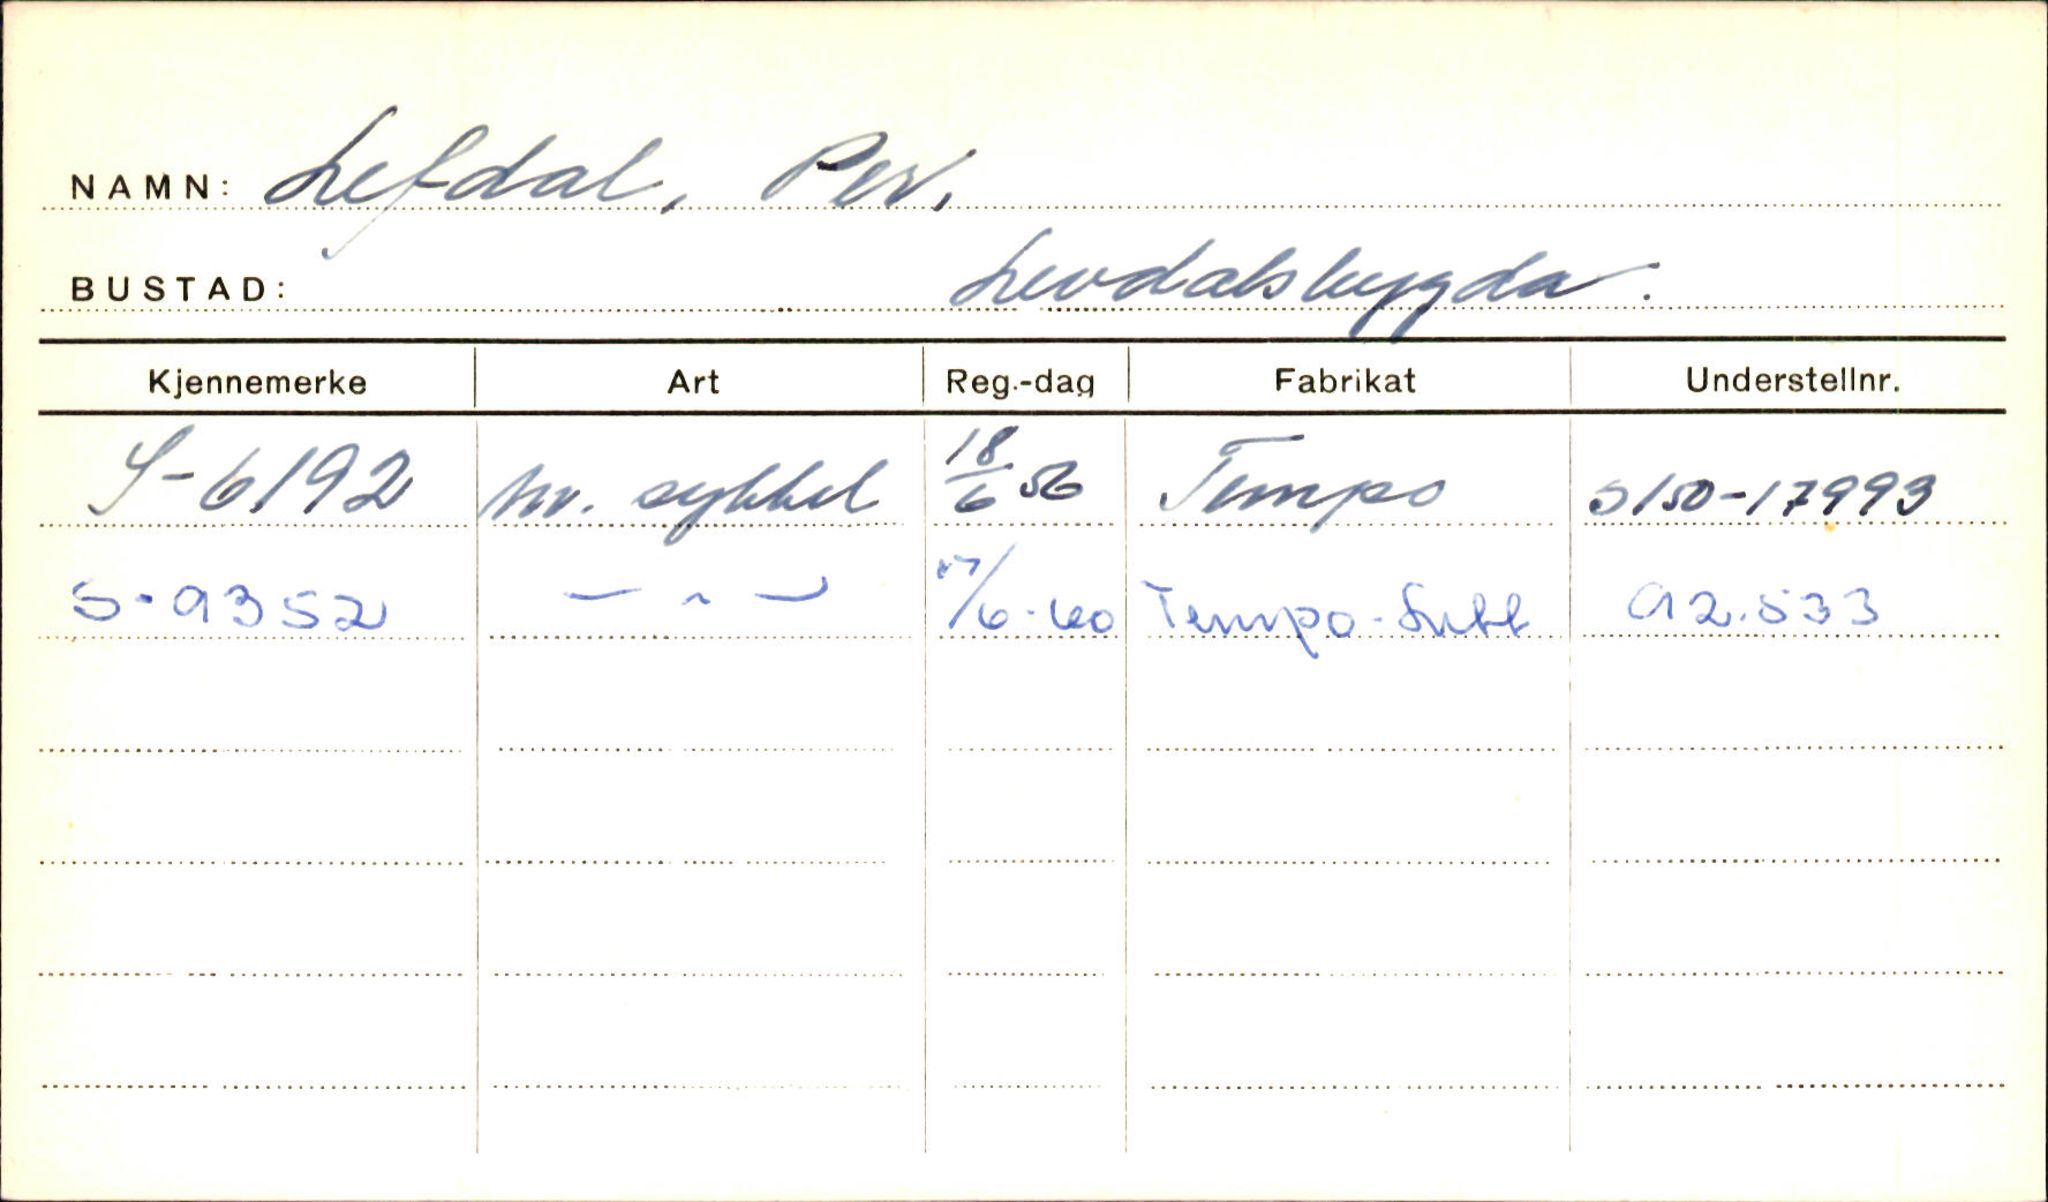 NAMN: Lefdal, Per.
BUSTAD: Levdalsbygda.
Kjennemerke Art Reg.-dag Fabrikat Understellnr.
S-6192 m. sykkel 18/6 56 Tempo S150-17993
S-9352 — " — 17/6-60 Tempo- 92.533